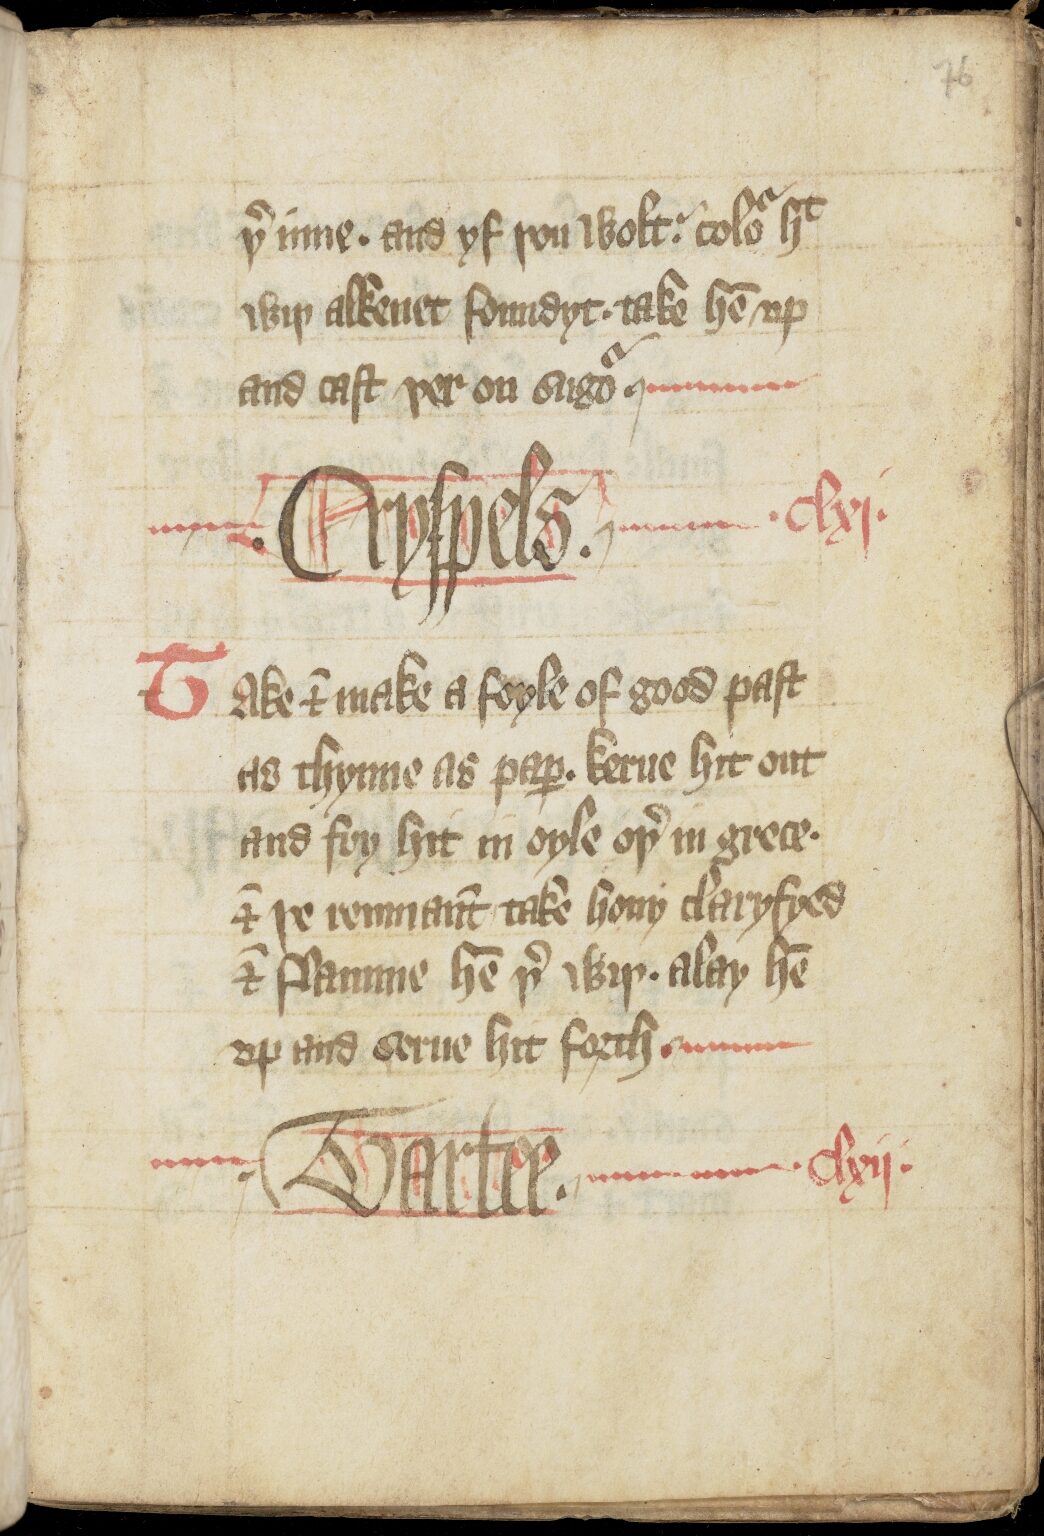 76
þ̉ inne. and yf þou wolt. colo᷑ hͭ
wiþ alkenet foundyt. take hē vp
and cast þer on sugo᷑.
.Cryspels. .clxi.
Take ⁊ make a foyle of good past
as thynne as paꝑ. kerue hit out
and fry hit in oyle oþ̉ in grece.
⁊ þe remnaūt take hony claryfyed
⁊ flamme hē þ̉ wiþ. alay hē
vp and serue hit forth.
.Tartee. .clxii.